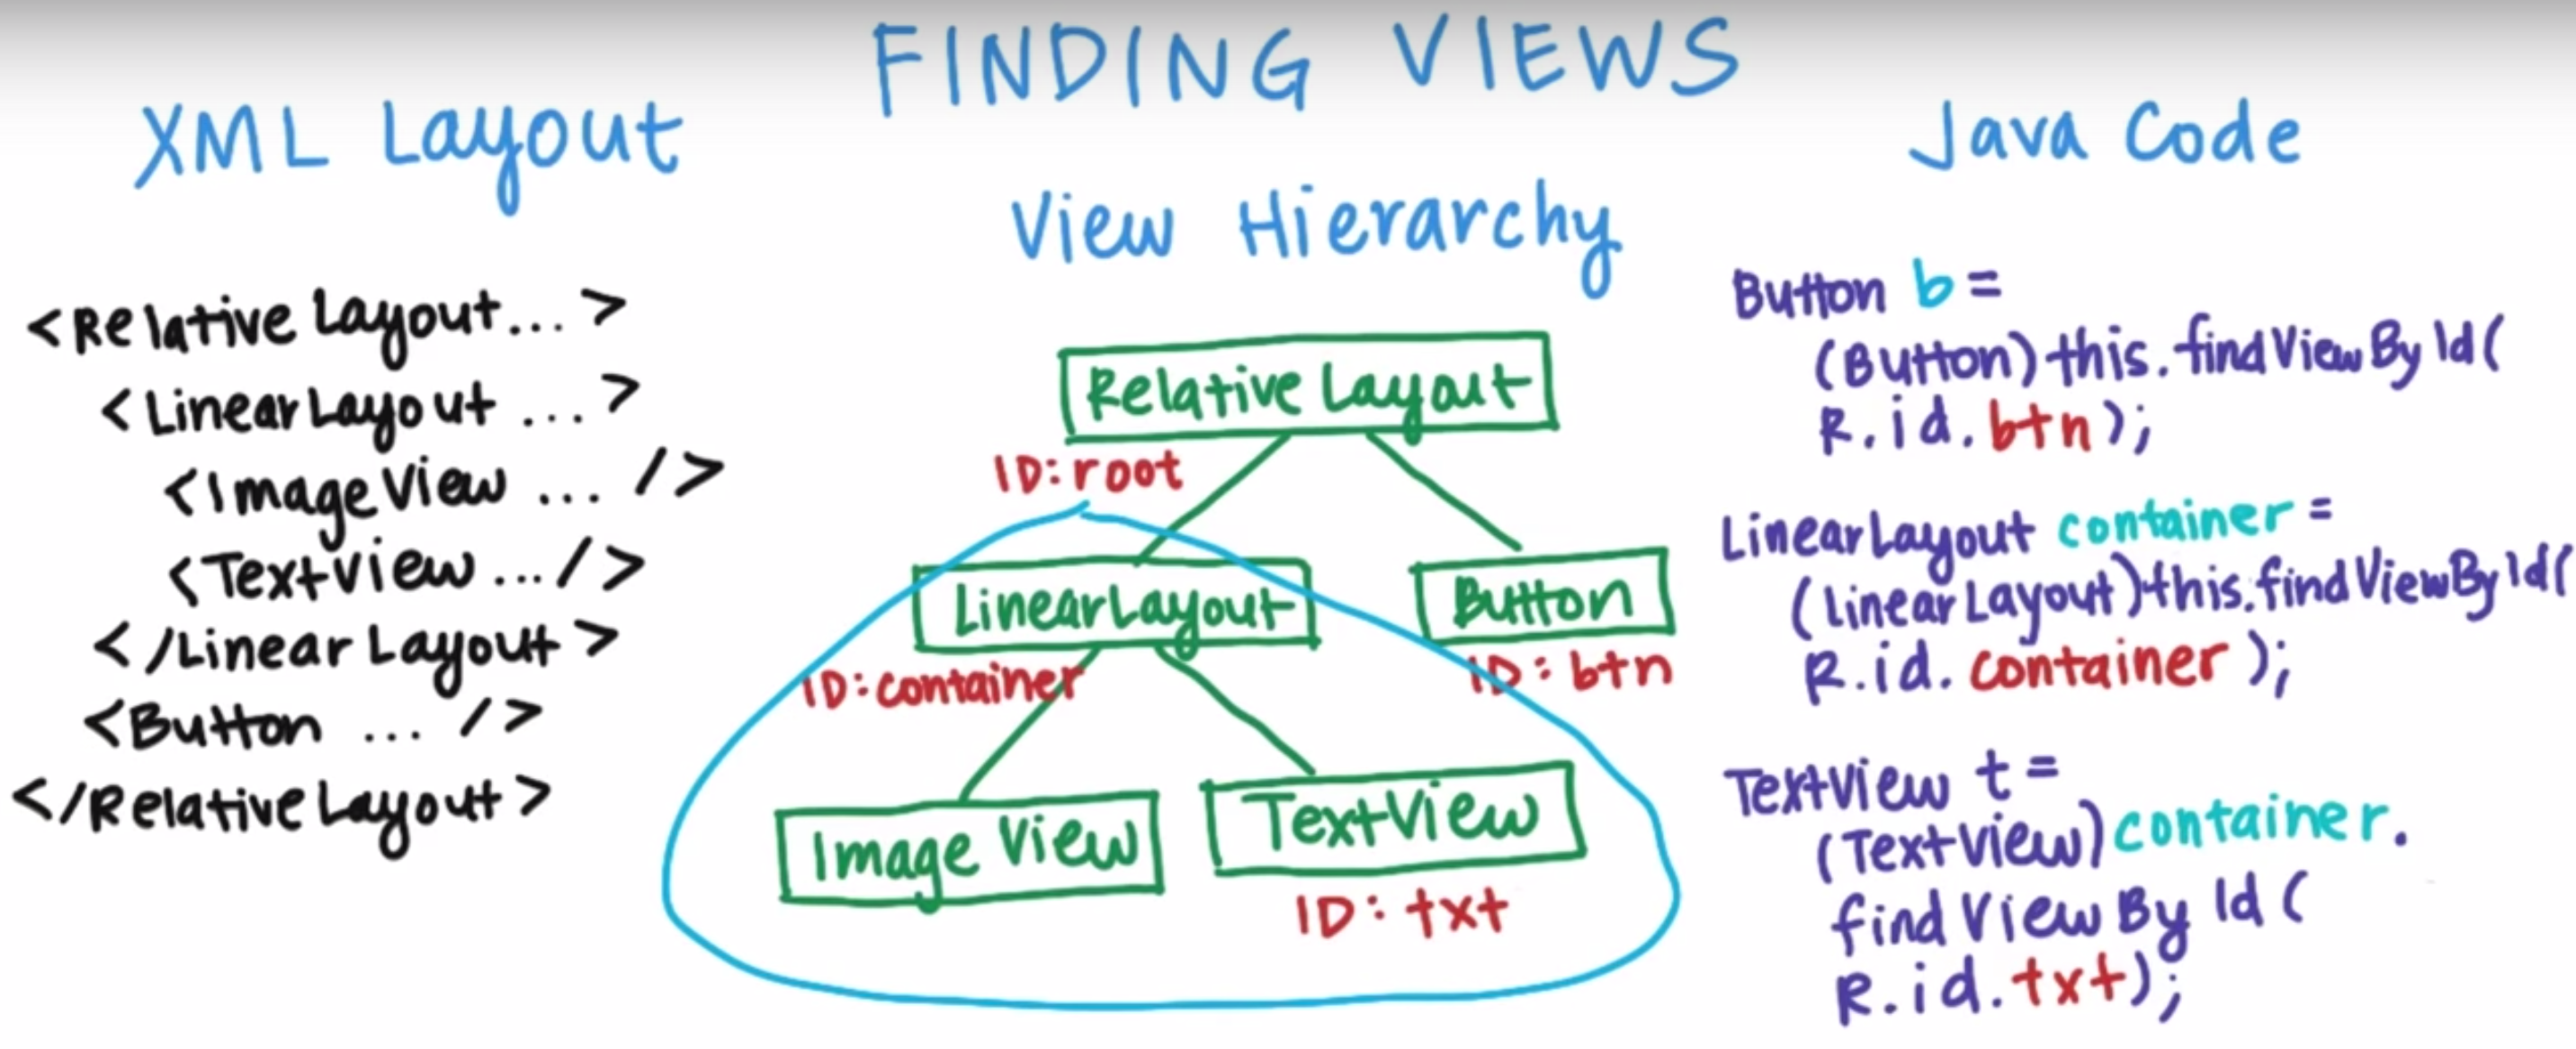 FINDING VIEWS
XML Layout
<Relative Layout... >
<LinearLayout ... >
<ImageView ... />
<TextView ... />
</Linear Layout >
<Button ... />
</RelativeLayout >
View Hierarchy
Relative Layout
ID: root
LinearLayout
ID: container
Button
ID: btn
Image View
TextView
ID: txt
Java Code
Button b =
(Button) this. findViewById(
R.id.btn);
LinearLayout container =
(LinearLayout) this.findViewById(
R.id. container );
TextView t =
(TextView) container.
find View By Id (
R.id.txt);